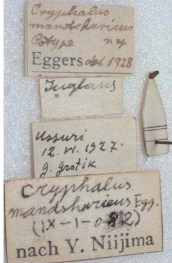 Cryphalus
mandshuricus
Cotype n sp
Eggers det 1928
Juglans
Ussuri
12. VI. 1927.
Cryphalus
mandshuricus Egg.
(IX-1-0
nach Y. Niijima